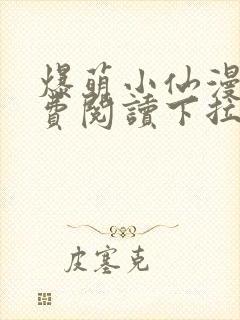 爆萌小仙漫
費閱讀下拉
皮塞克